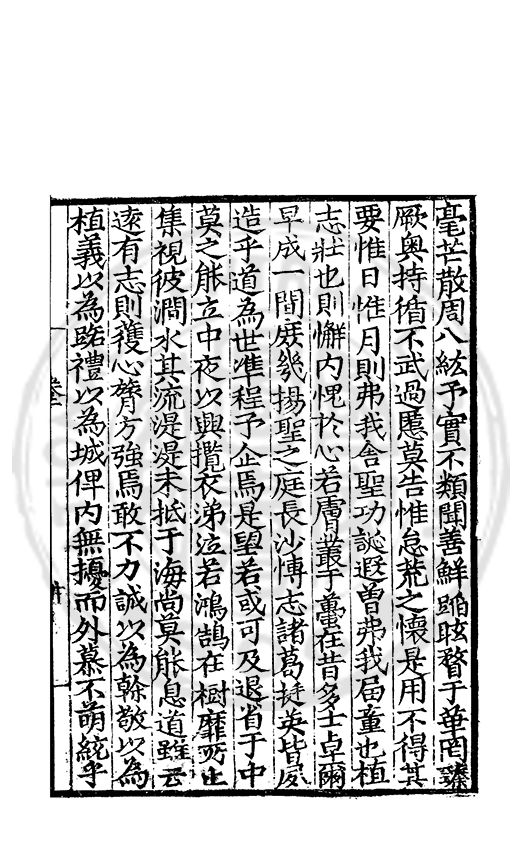 毫芒散周八紘予實不類聞善鮮蹈眩瞀于華罔臻
厥奥持循不武過慝莫告惟怠荒之懷是用不得其
要惟日惟月則弗我舍聖功誕遐曽弗我届童也植
志壯也則懈内愧於心若膚叢于蠆在昔多士卓爾
早成一間庶幾揚聖之庭長沙慱志諸葛挺英皆夙
造乎道為世準程予企焉是望若或可及退省于中
莫之能立中夜以興攬衣涕泣若鴻鵠在樹靡所止
集視彼澗水其流湜湜未抵于海尚莫能息道雖云
逺有志則䕶心膂方強焉敢不力誠以為榦敬以為
植義以為路禮以為城俾内無擾而外慕不萌統乎
卷三